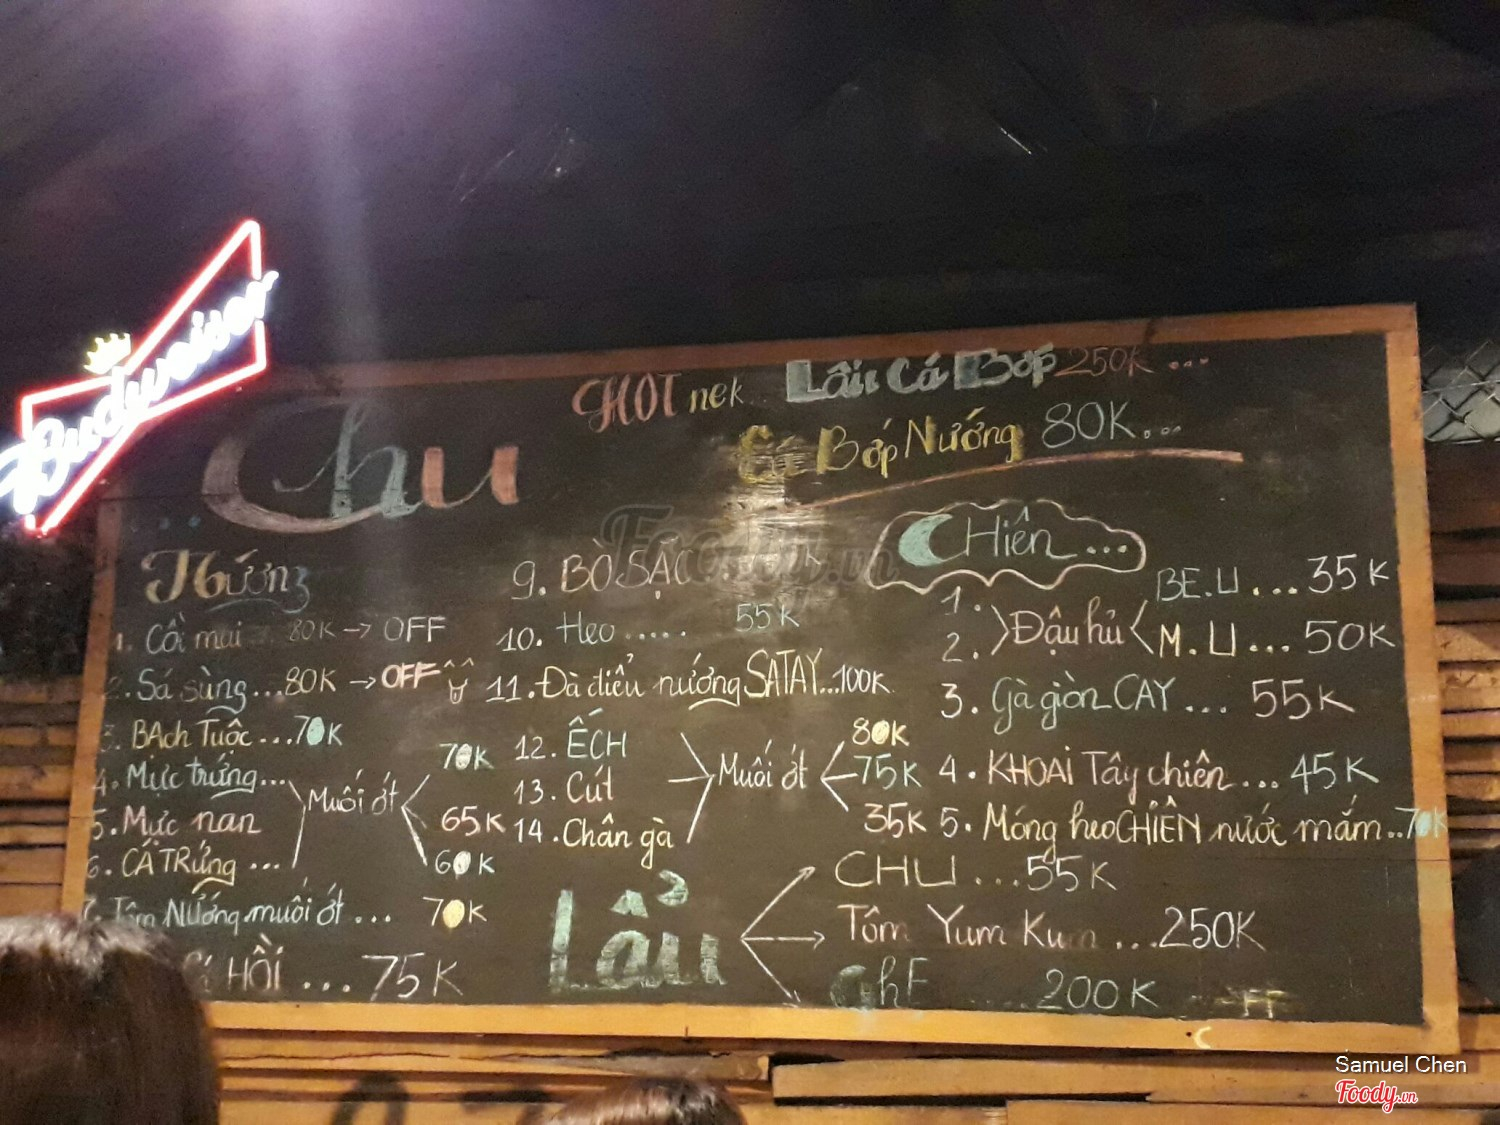 Budweiser
HOT nek.. Lẩu Cá Bớp 250K ...
Cá Bớp Nướng 80K...
Chu
Nướng
1. Cồi mai .. 80K → OFF
2. Sá sùng...80K → OFF
3. BAch Tuộc...70K
4. Mực trứng... 70K
5. Mực nan Muối ớt 65K
6. CÁ TRứng ... 60K
7. Tôm Nướng muối ớt ... 70K
HỒI ... 75K
9. BÒ
10. Heo ..... 55K
11. Đà điểu nướng SATAY...100K
12. ẾCH 80K
13. Cút Muối ớt 75K
14. Chân gà 35K
CHiên ...
1. BE.U ... 35K
2. Đậu hủ M.U ... 50K
3. Gà giòn CAY ... 55K
4. KHOAi Tây chiên ... 45K
5. Móng heo CHIÊN nước mắm..70K
Lẩu
CHU ...55K
Tôm Yum Kum ...250K
GhE ..... 200K
Foody.vn
Samuel Chen
Foody.vn